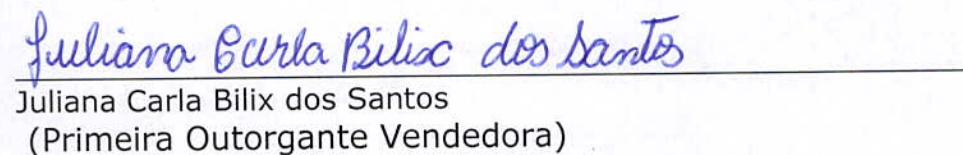 Juliana Carla Bilix dos Santos
Juliana Carla Bilix dos Santos
(Primeira Outorgante Vendedora)